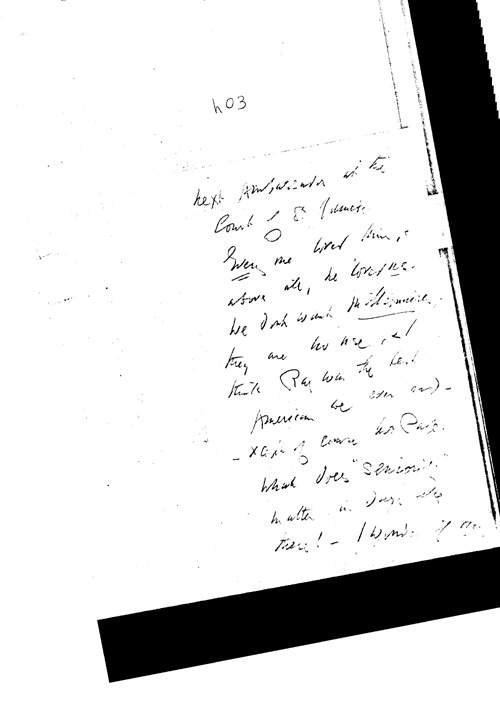 h03
next Ambassador at the
Court of St James.
Every one loved him, &
above all, he loved us.
We don't want Millionaires,
they are no use, &
think Ray was the best
American we ever
of course
What does "seniority"
matter in days like
these! – I wonder if